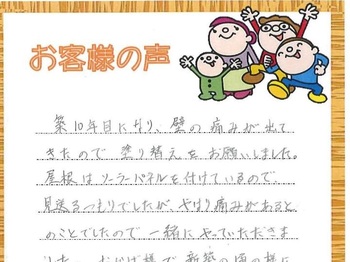 お客様の声
築10年目になり、壁の痛みが出て
きたので 塗り替えを お願いしました。
屋根は ソーラーパネルを 付けているので、
見送るつもりでしたが、やはり痛みがあると
のことでしたので 一緒に やっていただきま
した。おかげ様で 新築の頃の様に